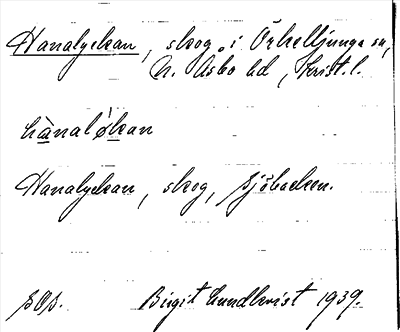 Hanalyckan, skog i Örkelljunga sn,
N. Åsbo hd, Krist. l.
hànaløkan
Hanalyckan, skog, Sjöbacken.
SOS. Birgit Lundkvist 1939.